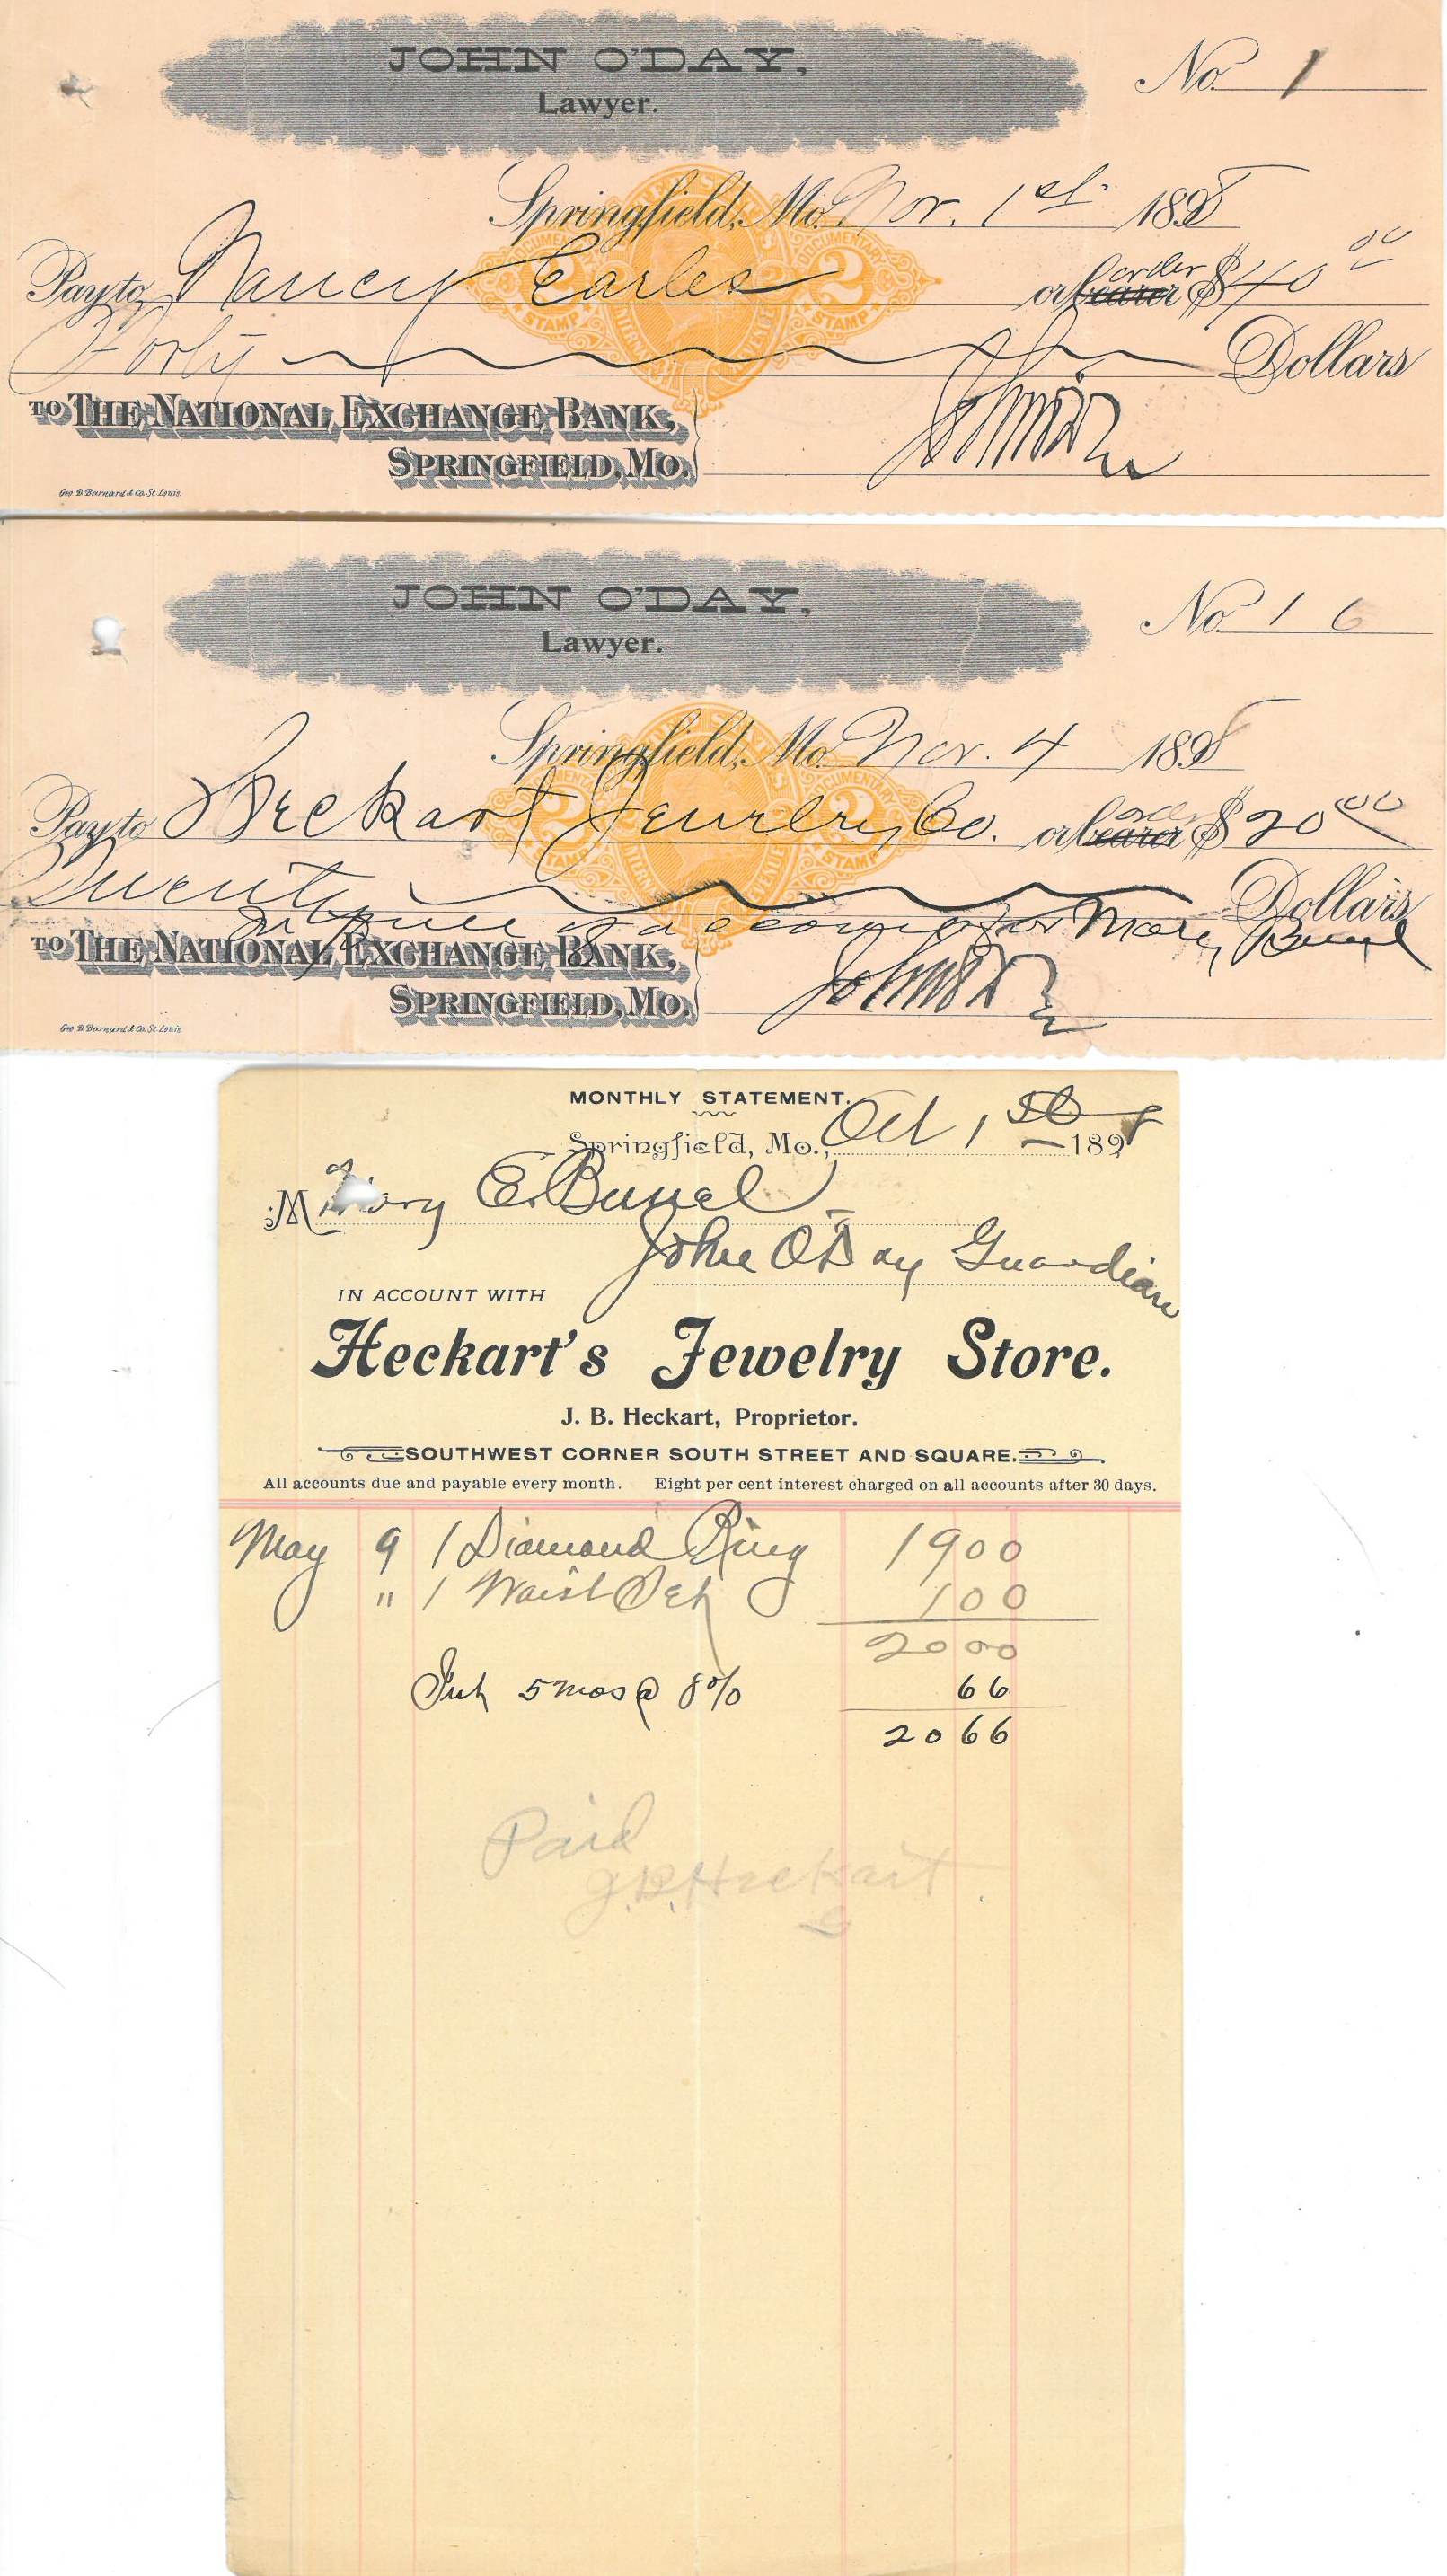 JOHN O'DAY,
Lawyer.
No. 1
Springfield, Mo. Nov. 1st 1898
Pay to Nancy Earles or bearer order $40 00
Forty Dollars
TO THE NATIONAL EXCHANGE BANK,
SPRINGFIELD, MO.
Geo D Barnard & Co. St Louis
DOCUMENTARY
2
STAMP
JOHN O'DAY,
Lawyer.
No. 16
Springfield, Mo. Nov. 4 1898
Pay to Heckart Jewelry Co. or bearer order $20 00
Twenty Dollars
In full of account for Mary
TO THE NATIONAL EXCHANGE BANK,
SPRINGFIELD, MO.
Geo D Barnard & Co. St Louis
2
STAMP
MONTHLY STATEMENT.
Springfield, Mo., Oct 1st 1898
M Mary E.
John O'Day Guardian
IN ACCOUNT WITH
Heckart's Jewelry Store.
J. B. Heckart, Proprietor.
SOUTHWEST CORNER SOUTH STREET AND SQUARE.
All accounts due and payable every month. Eight per cent interest charged on all accounts after 30 days.
May 9 1 Diamond Ring 19 00
" 1 Waist Set 1 00
20 00
Int 5 mos @ 8% 66
20 66
Paid
J.B. Heckart